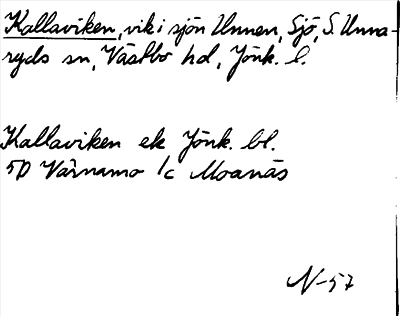 Kallaviken, vik i sjön Unnen, Sjö, S. Unna-
ryds sn, Västbo hd, Jönk. l.
Kallaviken ek Jönk. bl.
5D Värnamo 1c Moanäs
N-57